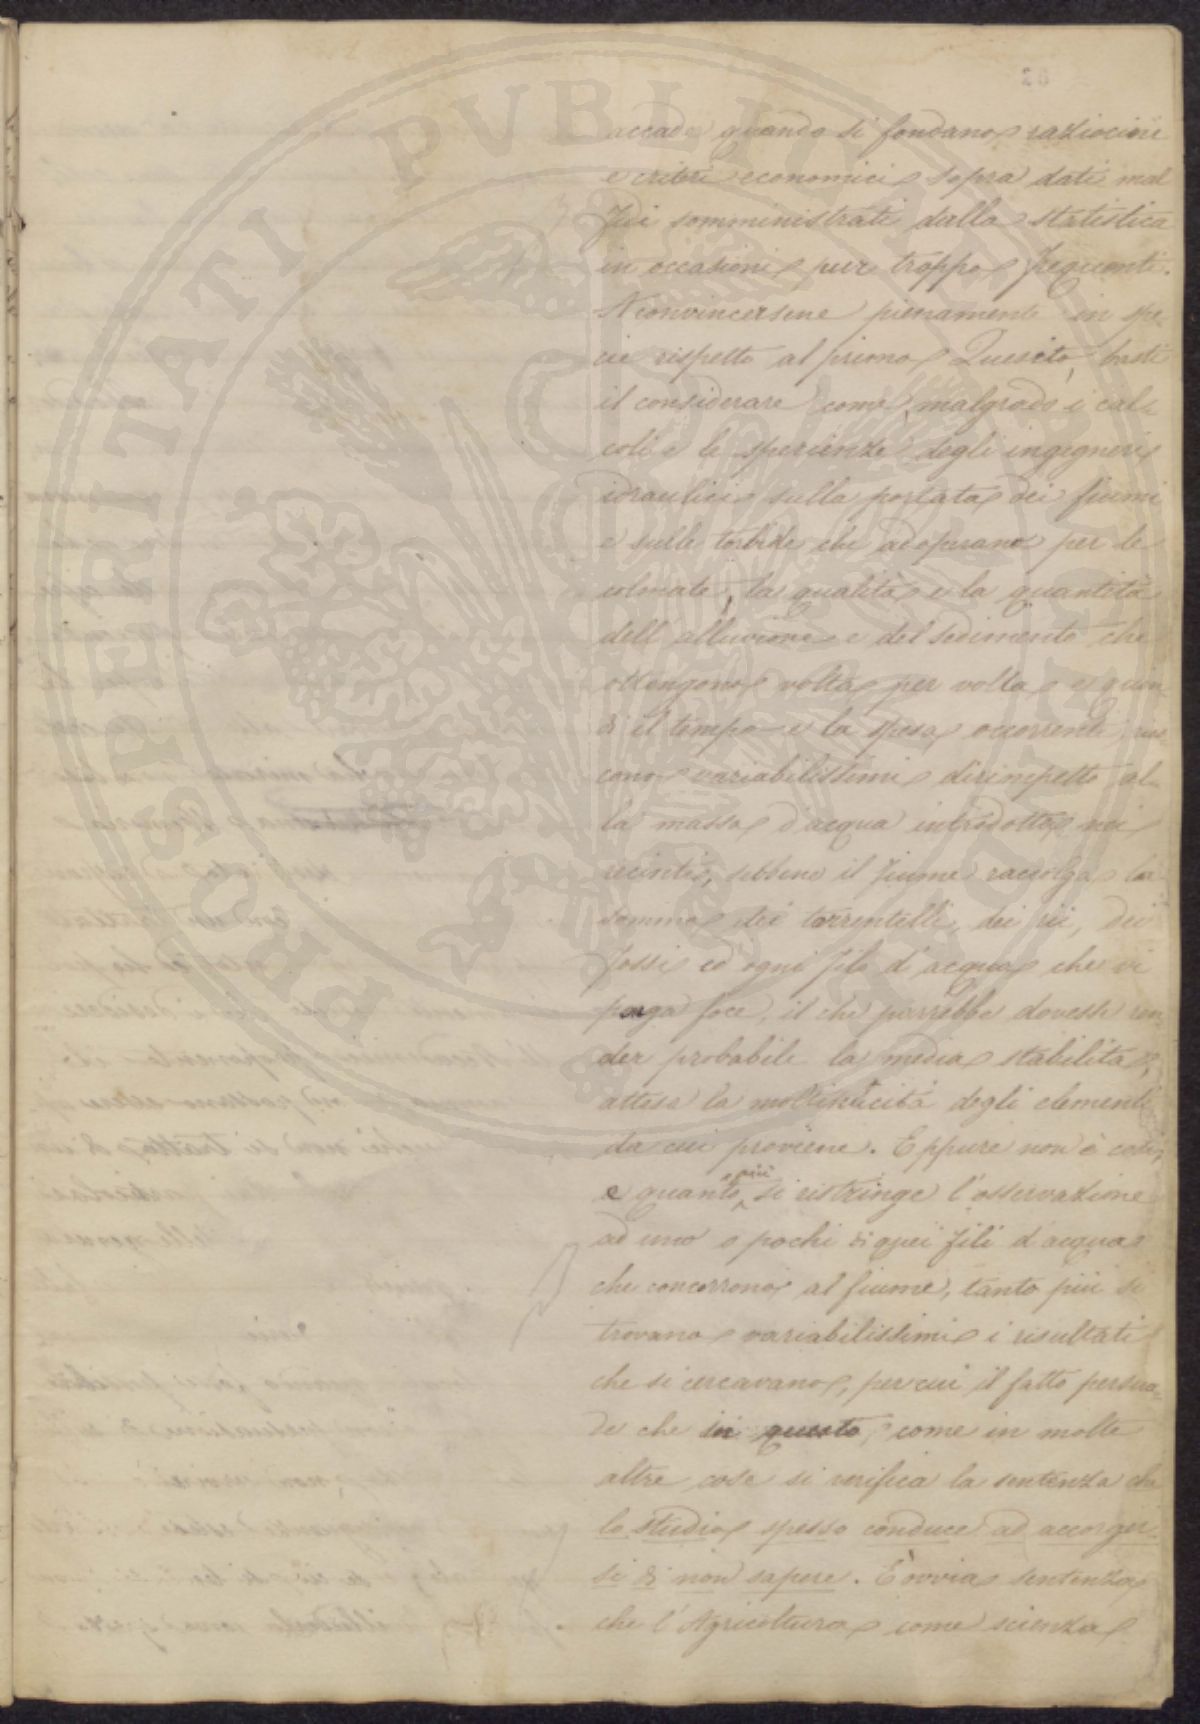 26
accade quando si fondano raziocinii
e criteri economici sopra dati mal
fidi somministrati dalla statistica
in occasioni pur troppo frequenti.
A convincersene pienamente in spe-
cie rispetto al primo Quesito, basti
il considerare come, malgrado i cal-
coli e le sperienze degli ingegneri
idraulici sulla portata dei fiumi
e sulle torbide che adoperano per le
colmate, la qualità e la quantità
dell'alluvione e del sedimento che
ottengono volta per volta e quin-
di il tempo e la spesa occorrenti, rie-
cono variabilissimi dirimpetto al-
la massa d'acqua introdotta nei
recinti, sebbene il fiume raccolga la
somma dei torrentelli, dei rii, dei
fossi ed ogni filo d'acqua che vi
ponga foce, il che parrebbe dovesse ren-
der probabile la media stabilità,
attesa la moltiplicità degli elementi
da cui proviene. Eppure non è così,
e quanto più si ristringe l'osservazione
ad uno o pochi di quei fili d'acqua
che concorrono al fiume, tanto più si
trovano variabilissimi i risultati
che si cercavano, per cui il fatto persua-
de che in questo, come in molte
altre cose si verifica la sentenza che
lo studio spesso conduce ad accorger-
si di non sapere. È ovvia sentenza
che l'Agricoltura come scienza
PROSPERITATI PVBLICAE